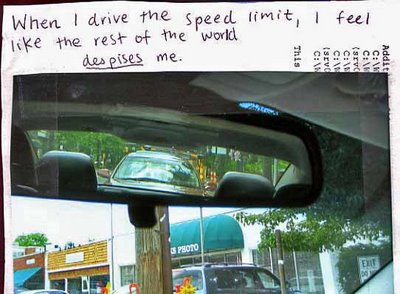 When I drive the speed limit, I feel
like the rest of the world
despises me.
Addit
C:\
(srvc
C:\
C:\
(srvc
C:\
This
S PHOTO
EXIT